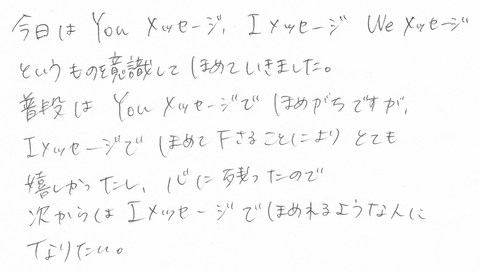 今日は You メッセージ, I メッセージ We メッセージ
というものを意識して ほめていきました。
普段は You メッセージで ほめがちですが,
I メッセージで ほめて下さることにより とても
嬉しかったし, 心に残ったので
次からは I メッセージ でほめれるような人に
なりたい。